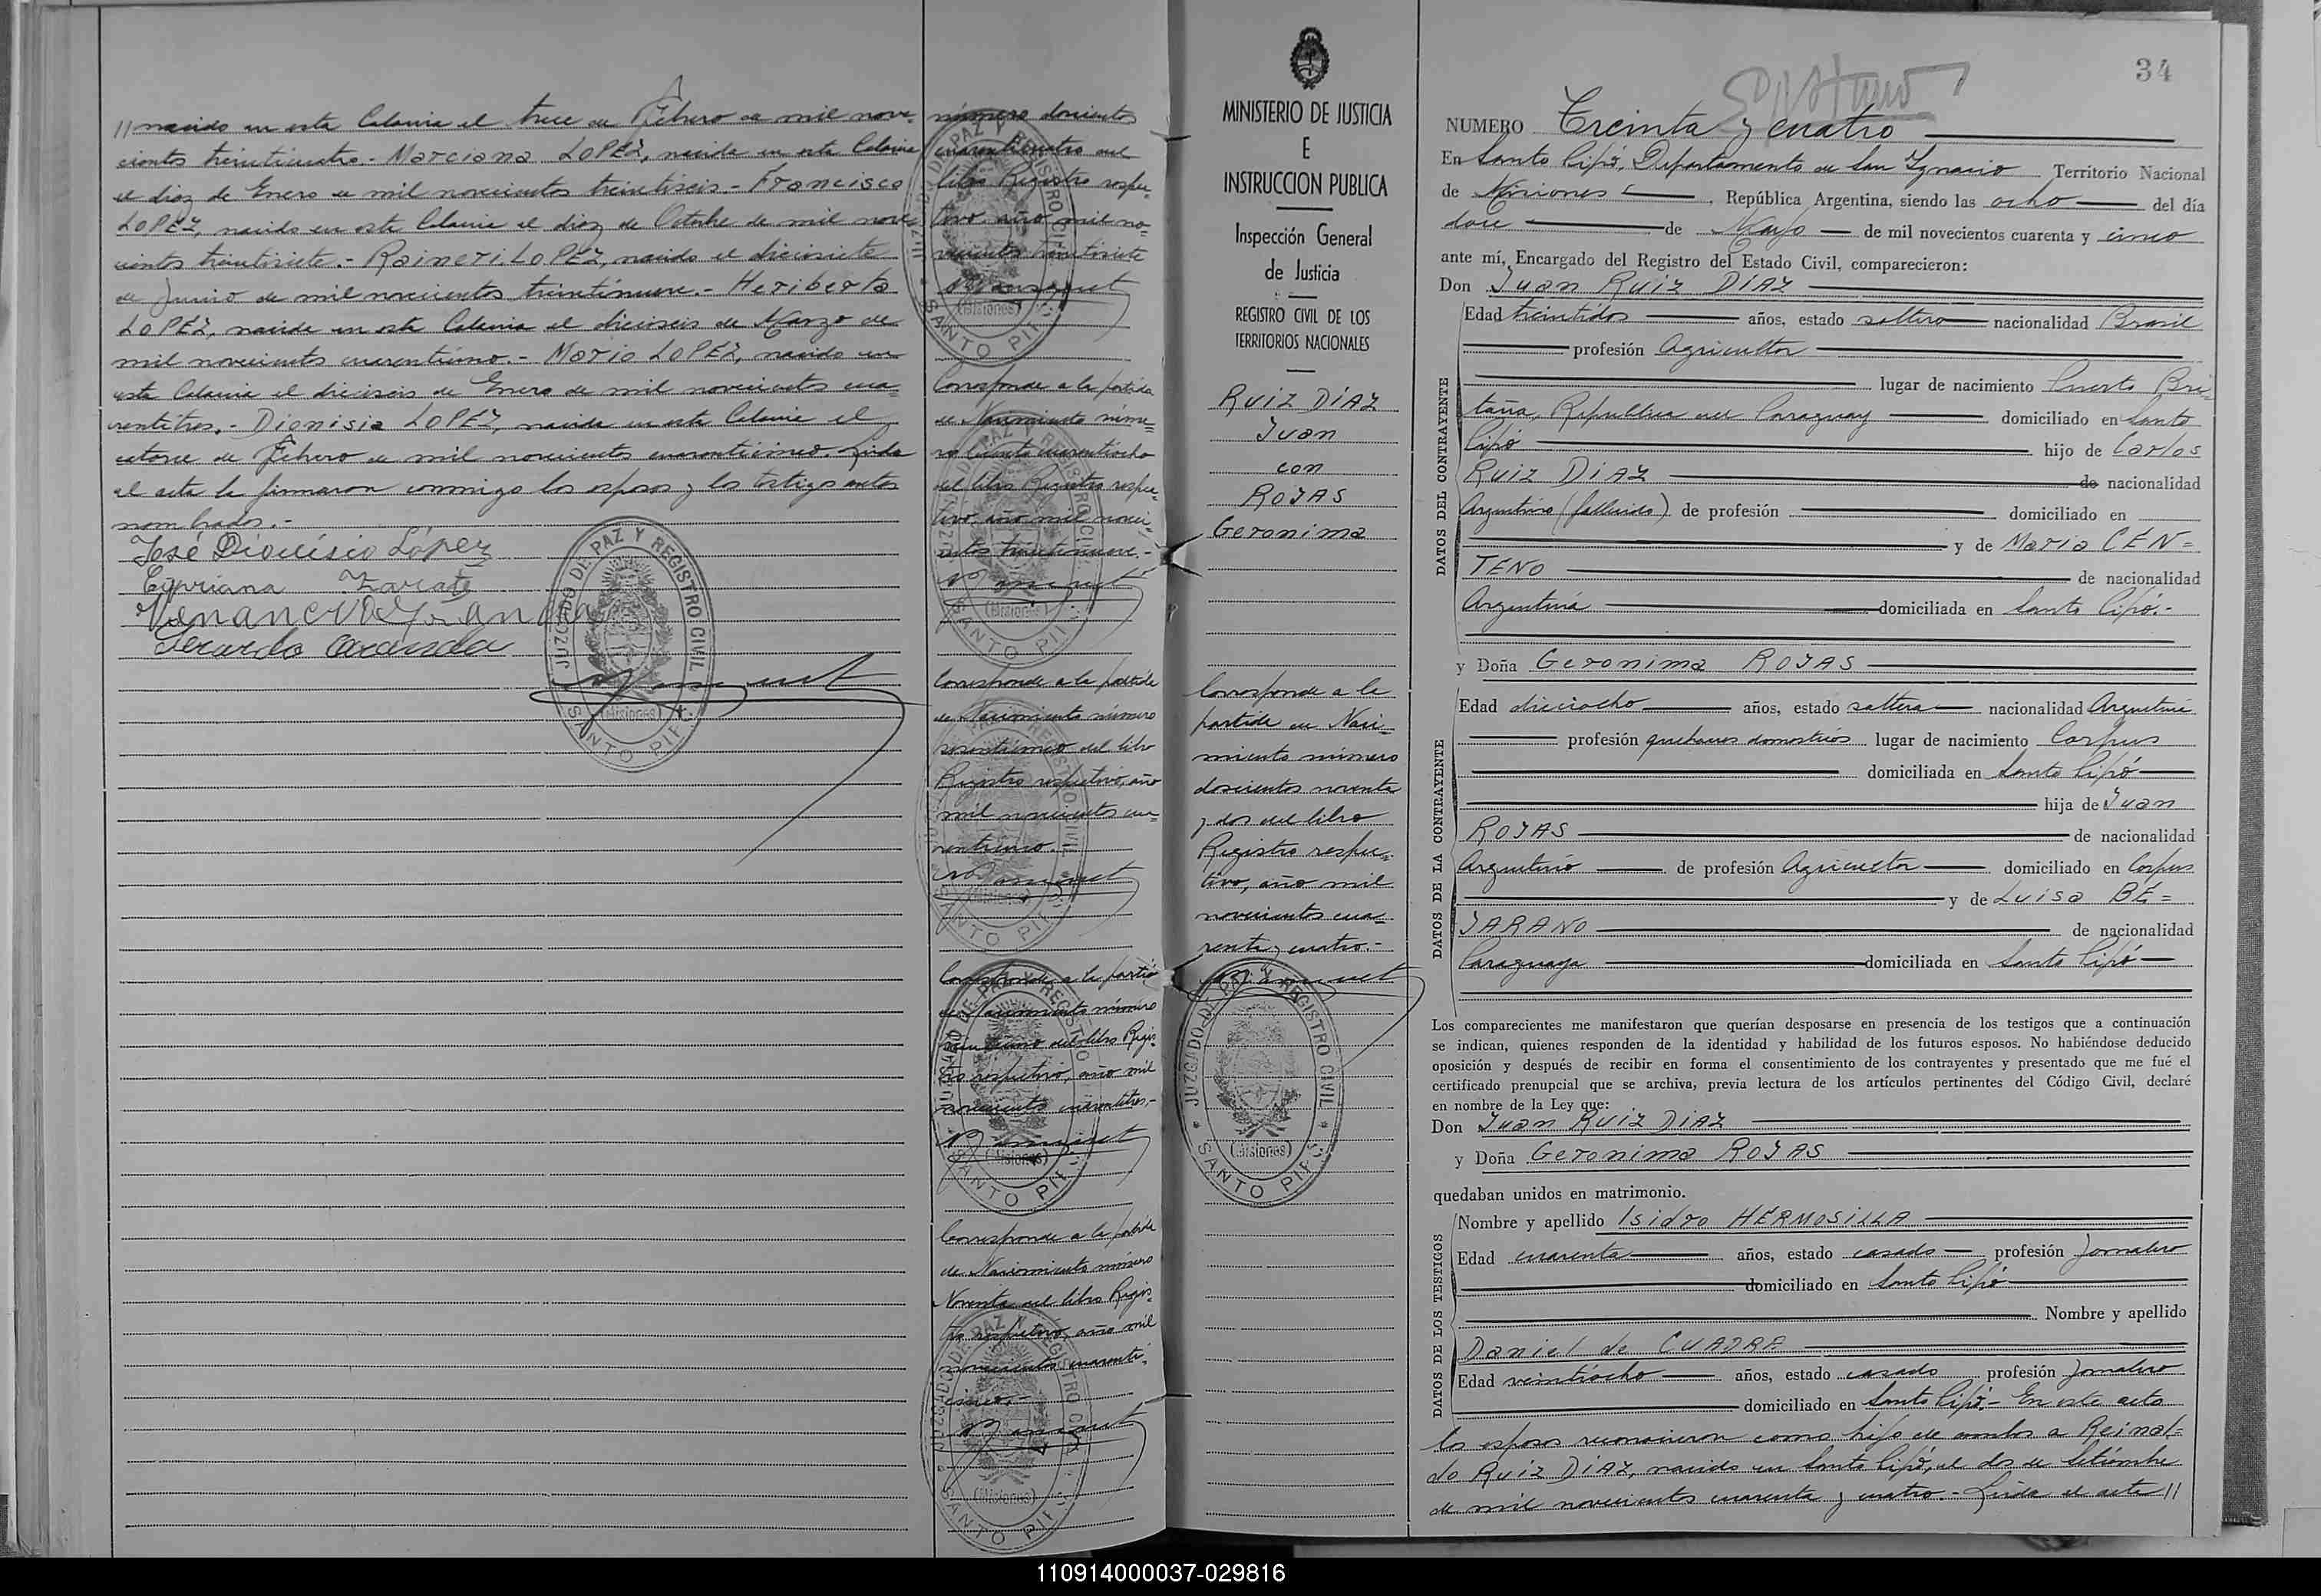 // nacido en esta Colonia el trece de Febrero de mil nove-
cientos treinticuatro.- Marciana LOPEZ, nacida en esta Colonia
el diez de Enero de mil novecientos treintiseis - Francisco
LOPEZ, nacido en esta Colonia el diez de Octubre de mil nove-
cientos treintisiete.- Raineri LOPEZ, nacido el diecisiete
de Junio de mil novecientos treintinueve.- Heriberta
LOPEZ, nacida en esta Colonia el dieciseis de Marzo de
mil novecientos cuarentiuno.- Mario LOPEZ, nacido en
esta Colonia el dieciseis de Enero de mil novecientos cua-
rentitres.- Dionisia LOPEZ, nacida en esta Colonia el
catorce de Febrero de mil novecientos cuarenticinco. Leida
el acta la firmaron conmigo los esposos y los testigos antes
nombrados.-
José Dionisio López
Cipriana Zarate
Gerardo Aranda
JUZGADO DE PAZ Y REGISTRO CIVIL
(Misiones)
SANTO PIPÓ
número doscientos
cuarenticuatro del
libro Registro respec-
tivo año mil no-
vecientos treintisiete
Corresponde a la partida
de Nacimiento núme-
ro Ciento cuarentiocho
del libro Registro respec-
tivo, año mil novec-
ientos treintinueve.-
Corresponde a la partida
de Nacimiento número
sesenticinco del libro
Registro respectivo, año
mil novecientos cua-
rentiuno.-
Corresponde a la partida
de Nacimiento número
veintiuno del libro Regis-
tro respectivo, año mil
novecientos cuarentitres.-
Corresponde a la partida
de Nacimiento número
Noventa del libro Regis-
tro respectivo, año mil
novecientos cuarenti-
cinco.-
MINISTERIO DE JUSTICIA
E
INSTRUCCION PUBLICA
Inspección General
de Justicia
REGISTRO CIVIL DE LOS
TERRITORIOS NACIONALES
RUIZ DIAZ
Juan
con
ROJAS
Geronima
Corresponde a la
partida de Naci-
miento número
doscientos noventa
y dos del libro
Registro respec-
tivo, año mil
novecientos cua-
renta y cuatro.-
JUZGADO DE PAZ Y REGISTRO CIVIL
(Misiones)
SANTO PIPÓ
34
NUMERO Treinta y cuatro
En Santo Pipó, Departamento de San Ignacio Territorio Nacional
de Misiones, República Argentina, siendo las ocho del día
doce de Mayo de mil novecientos cuarenta y cinco
ante mí, Encargado del Registro del Estado Civil, comparecieron:
Don Juan RUIZ DIAZ
DATOS DEL CONTRAYENTE
Edad treintidos años, estado soltero nacionalidad Brasil
profesión Agricultor
lugar de nacimiento Puerto Bri-
taña, Republica del Paraguay domiciliado en Santo
Pipó hijo de Carlos
RUIZ DIAZ de nacionalidad
Argentino (fallecido) de profesión domiciliado en
y de Maria CEN=
TENO de nacionalidad
Argentina domiciliada en Santo Pipó.-
y Doña Geronima ROJAS
DATOS DE LA CONTRAYENTE
Edad dieciocho años, estado soltera nacionalidad Argentina
profesión quehaceres domésticos lugar de nacimiento Corpus
domiciliada en Santo Pipó
hija de Juan
ROJAS de nacionalidad
Argentino de profesión Agricultor domiciliado en Corpus
y de Luisa BE=
JARANO de nacionalidad
Paraguaya domiciliada en Santo Pipó
Los comparecientes me manifestaron que querían desposarse en presencia de los testigos que a continuación
se indican, quienes responden de la identidad y habilidad de los futuros esposos. No habiéndose deducido
oposición y después de recibir en forma el consentimiento de los contrayentes y presentado que me fué el
certificado prenupcial que se archiva, previa lectura de los artículos pertinentes del Código Civil, declaré
en nombre de la Ley que:
Don Juan RUIZ DIAZ
y Doña Geronima ROJAS
quedaban unidos en matrimonio.
DATOS DE LOS TESTIGOS
Nombre y apellido Isidro HERMOSILLA
Edad cuarenta años, estado casado profesión Jornalero
domiciliado en Santo Pipó
Nombre y apellido
Daniel de CUADRA
Edad veintiocho años, estado casado profesión Jornalero
domiciliado en Santo Pipó.- En este acto
los esposos reconocieron como hijo de ambos a Reinal=
do RUIZ DIAZ, nacido en Santo Pipó, el dos de Setiembre
de mil novecientos cuarenta y cuatro.- Leída el acta //
110914000037-029816